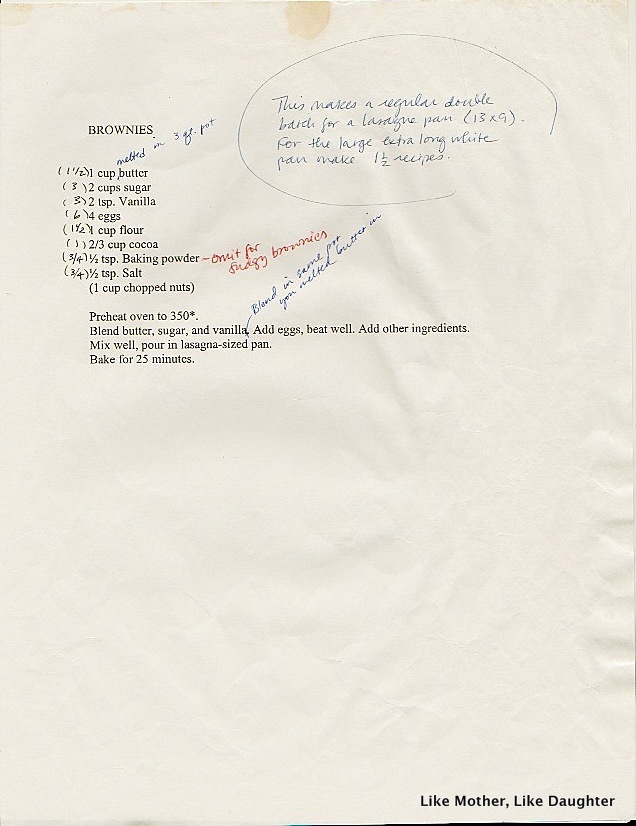 This makes a regular double
batch for a lasagne pan (13x9).
For the large extra long white
pan make 1½ recipes.
BROWNIES
melted in 3 qt. pot
(1½)1 cup butter
(3)2 cups sugar
(3)2 tsp. Vanilla
(6)4 eggs
(1½)1 cup flour
(1)2/3 cup cocoa
(3/4)½ tsp. Baking powder – omit for
fudgy brownies
(3/4)½ tsp. Salt
(1 cup chopped nuts)
Blend in same pot
you melted butter in
Preheat oven to 350*.
Blend butter, sugar, and vanilla. Add eggs, beat well. Add other ingredients.
Mix well, pour in lasagna-sized pan.
Bake for 25 minutes.
Like Mother, Like Daughter